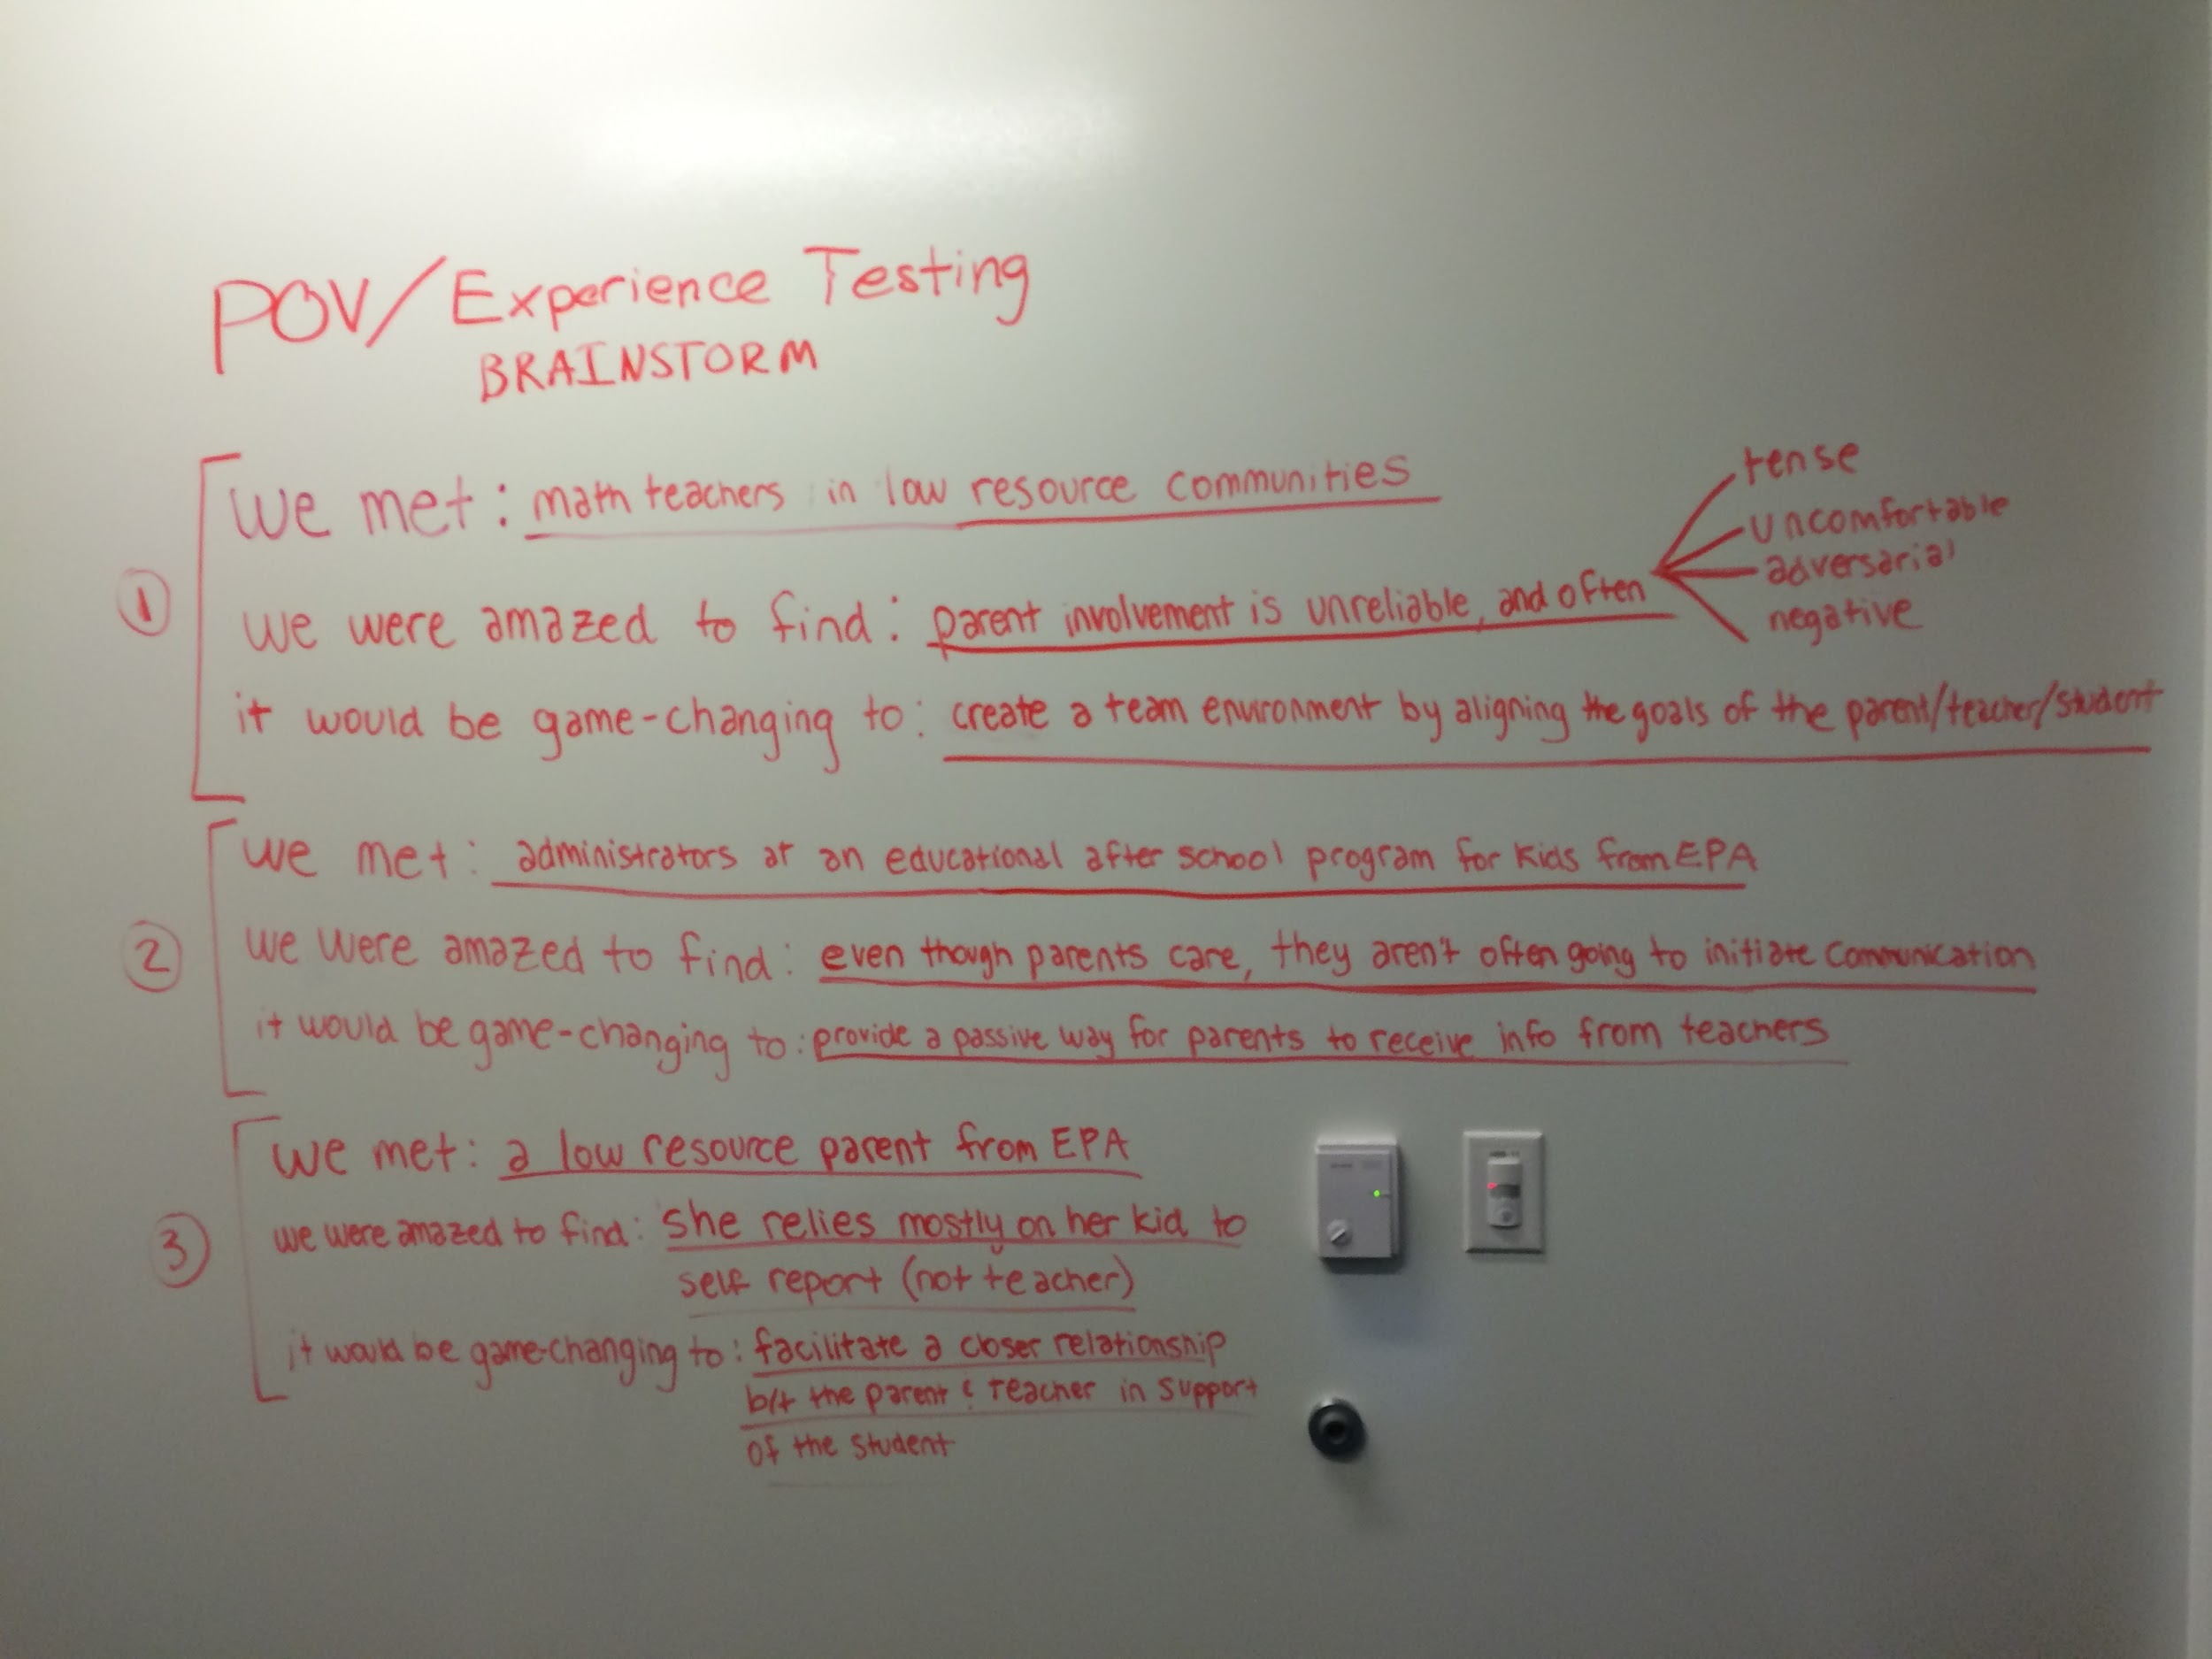 POV/Experience Testing
BRAINSTORM
1
we met: math teachers in low resource communities
we were amazed to find: parent involvement is unreliable, and often
tense
uncomfortable
adversarial
negative
it would be game-changing to: create a team environment by aligning the goals of the parent/teacher/student
2
we met: administrators at an educational after school program for kids from EPA
we were amazed to find: even though parents care, they aren't often going to initiate communication
it would be game-changing to: provide a passive way for parents to receive info from teachers
3
we met: a low resource parent from EPA
we were amazed to find: she relies mostly on her kid to
self report (not teacher)
it would be game-changing to: facilitate a closer relationship
b/t the parent & teacher in support
of the student